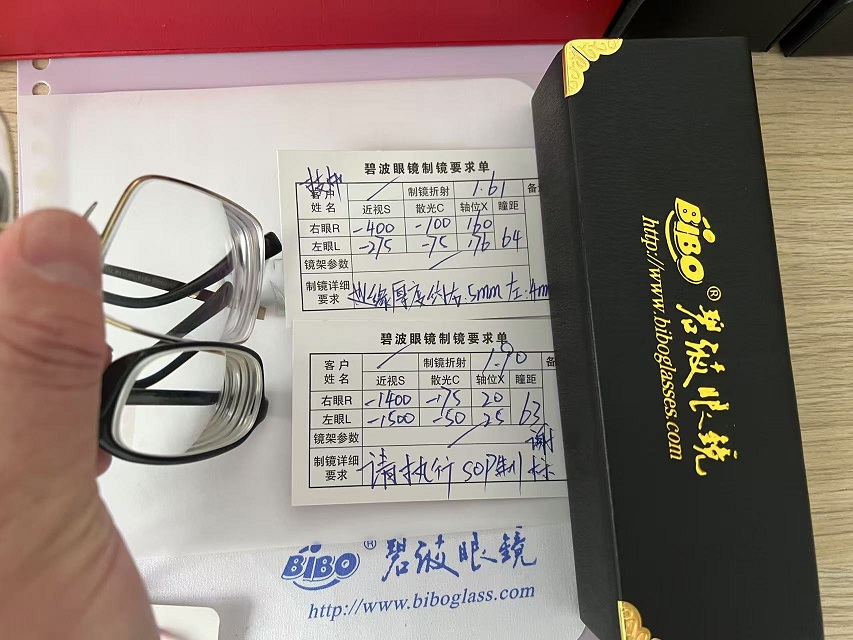 碧波眼镜制镜要求单
客户 姓名 制镜折射 1.61
近视S 散光C 轴位X 瞳距
右眼R -400 -100 160
左眼L -275 -75 176 64
镜架参数
制镜详细要求 边缘厚度约右.5mm 左.4m
碧波眼镜制镜要求单
客户 姓名 制镜折射 1.90
近视S 散光C 轴位X 瞳距
右眼R -1400 -175 20
左眼L -1500 -50 25 63
镜架参数
制镜详细要求 请执行SOP制 标
谢
BiBO® 碧波眼镜
http://www.biboglass.com
BiBO® 碧波眼镜
http://www.biboglasses.com